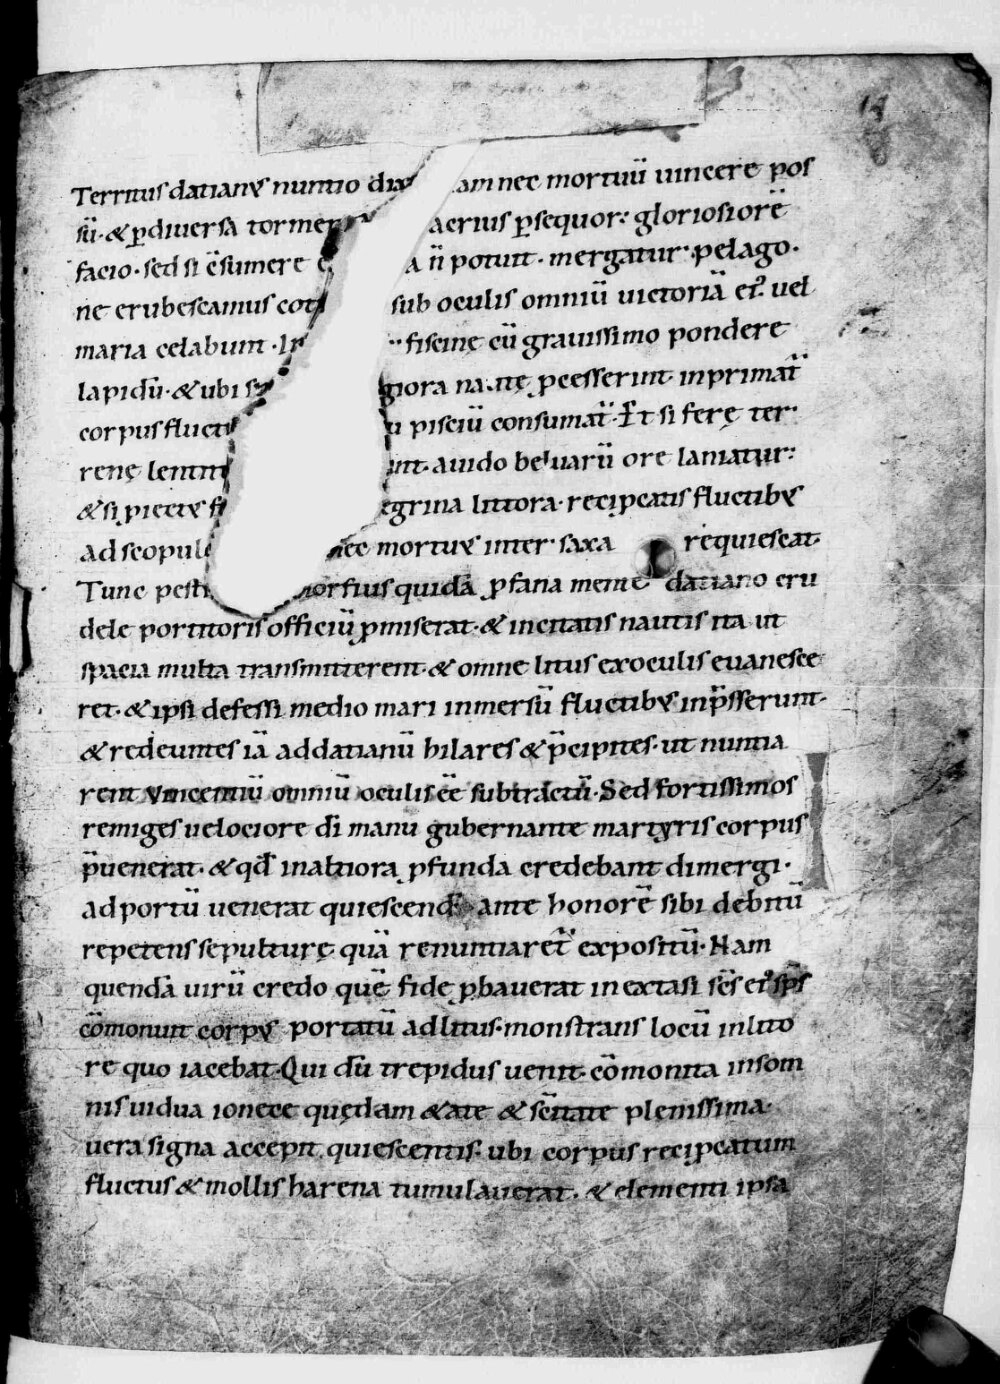 14
Territus datianꝰ nuntio dix am nec mortuū uincere pos
sū· & ꝑdiuersa tormen acrius ꝑsequor· gloriosiorē
facio· sed si c̄sumere a n̄ potuit· mergatur· pelago·
ne erubescamus sub oculis omniū uictoriā eiꝰ uel
maria celabunt· In fiscine cū grauissimo pondere
lapidū· & ubi giora ꝓcesserint· inprimat̄
corpus fluct u pisciū consumat̄· Et si ferę ter
renę lenit nt· auido beluarū ore laniatur·
& si pietꝰ f egrina littora· recipeatis fluctibꝰ
ad scopul nec mortuꝰ inter saxa requiescat·
Tunc pesti morfius quidā ꝓfana mente datiano cru
dele portitoris officiū ꝓmiserat· & incitatis nautis ita ut
spacia multa transmitterent· & omne litus exoculis euanesce
ret· & ipsi defessi medio mari inmersū fluctibꝰ inp̄sserunt·
& redeuntes iā addatianū hilares & p̄cipites· ut nuntia
rent vincentiū omniū oculis ēē subtractū· Sed fortissimos
remiges uelociore dī manu gubernante martyris corpus
p̄uenerat· & qd̄ inaltiora ꝓfunda credebant dimergi·
ad portū uenerat quiescend ante honorē sibi debitū
repetens sepulturę quā renuntiaret̄ expositū· Nam
quendā uirū credo quē fide ꝓbauerat in extasi sc̄s eiꝰ sp̄s
cōmonuit corpꝰ portatū ad litus· monstrans locū inlito
re quo iacebat· Qui dū trepidus uenit· cōmonita insom
nis uidua ionece quędam &ate & sc̄itate plenissima·
uera signa accepit quiescentis· ubi corpus recipeatum
fluctus & mollis harena tumulauerat· & elementi ipsa